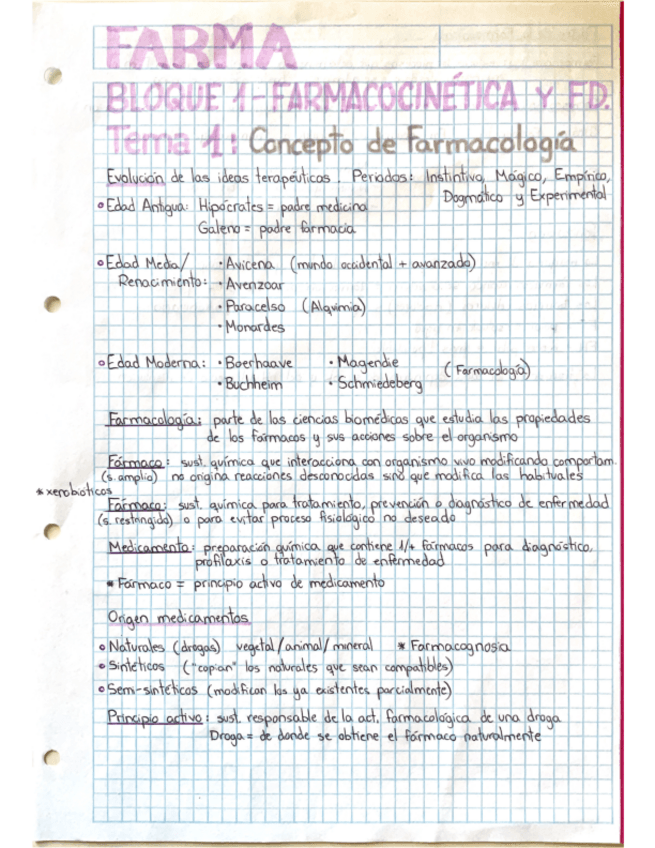 FARMA
BLOQUE 1-FARMACOCINÉTICA Y FD.
Tema 1: Concepto de Farmacología
Evolución de las ideas terapéuticas. Periodos: Instintivo, Mágico, Empírico,
Dogmático y Experimental
Edad Antigua: Hipócrates = padre medicina
Galeno = padre farmacia
Edad Media/ · Avicena (mundo occidental + avanzado)
Renacimiento: · Avenzoar
· Paracelso (Alquimia)
· Monardes
Edad Moderna: · Boerhaave · Magendie (Farmacología)
· Buchheim · Schmiedeberg
Farmacología: parte de las ciencias biomédicas que estudia las propiedades
de los fármacos y sus acciones sobre el organismo
Fármaco: sust. química que interacciona con organismo vivo modificando comportam.
(s. amplio) no origina reacciones desconocidas sino que modifica las habituales
* xenobióticos
Fármaco: sust. química para tratamiento, prevención o diagnóstico de enfermedad
(s. restringido) o para evitar proceso fisiológico no deseado
Medicamento: preparación química que contiene 1/+ fármacos para diagnóstico,
profilaxis o tratamiento de enfermedad
* Fármaco = principio activo de medicamento
Origen medicamentos
Naturales (drogas) vegetal/animal/mineral * Farmacognosia
Sintéticos ("copian" los naturales que sean compatibles)
Semi-sintéticos (modifican los ya existentes parcialmente)
Principio activo: sust. responsable de la act. farmacológica de una droga
Droga = de donde se obtiene el fármaco naturalmente